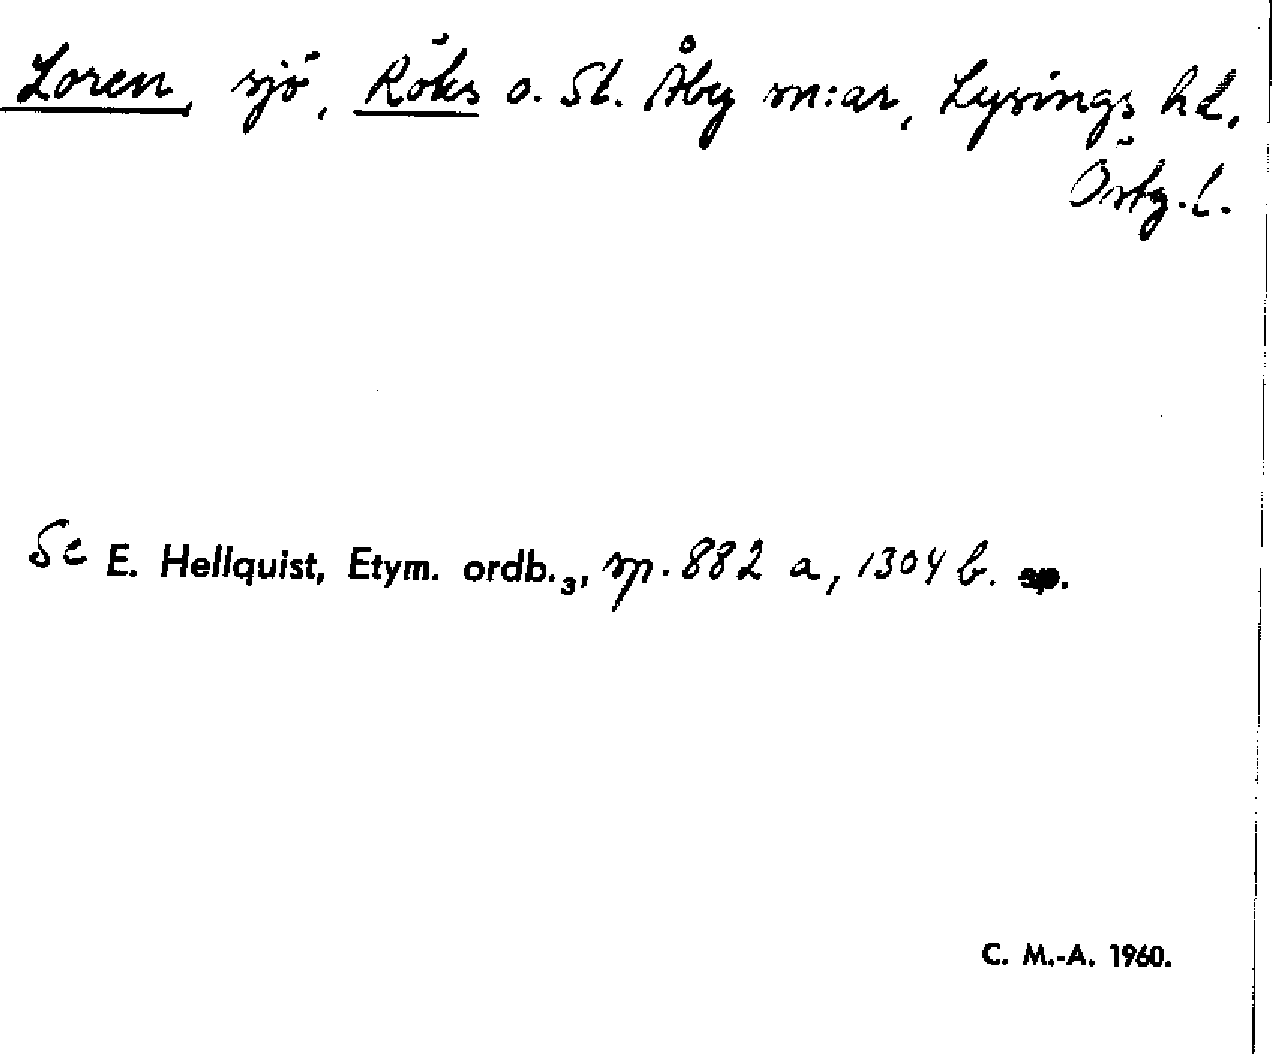 Loren, sjö, Röks o. St. Åby sn:ar, Lysings hd,
Östg.l.
Se E. Hellquist, Etym. ordb.₃, sp. 882 a, 1304 b. sp.
C. M.-A. 1960.